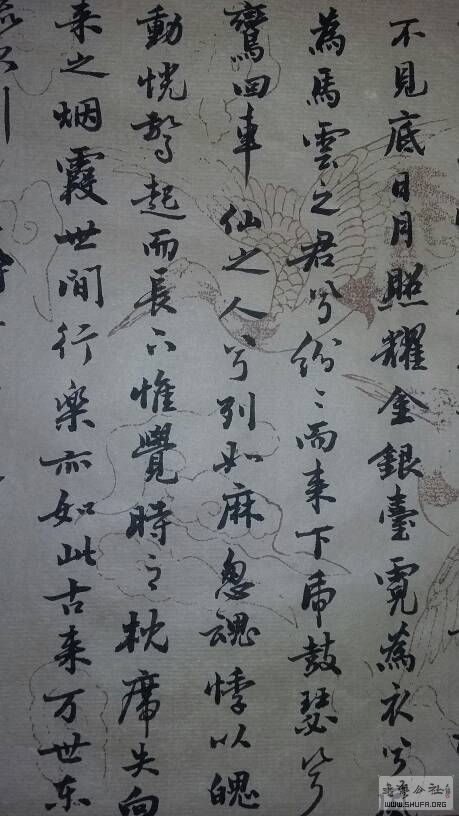 不見底日月照耀金銀臺霓為衣兮
為馬雲之君兮紛〻而来下虎鼓瑟兮
鸞回車仙之人兮列如麻忽魂悸以魄
動恍驚起而長嗟惟覺時之枕席失向
来之烟霞世間行樂亦如此古来万世东
WWW.SHUFA.ORG